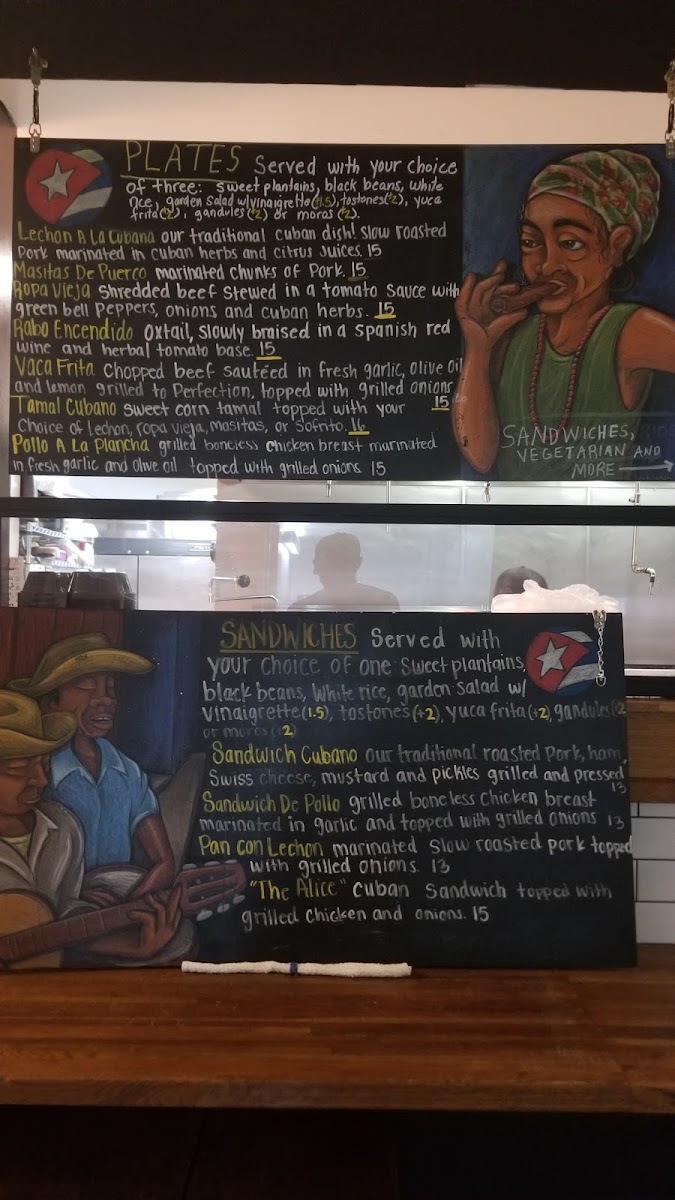 PLATES Served with your choice
of three: sweet plantains, black beans, white
rice, garden salad w/vinaigrette(1.5), tostones(+2), yuca
frita(+2), gandules(+2) or moros (+2).
Lechon A La Cubana our traditional cuban dish! slow roasted
Pork marinated in cuban herbs and citrus juices. 15
Masitas De Puerco marinated chunks of Pork. 15
Ropa Vieja Shredded beef stewed in a tomato sauce with
green bell peppers, onions and cuban herbs. 15
Rabo Encendido oxtail, slowly braised in a spanish red
wine and herbal tomato base. 15
Vaca Frita Chopped beef sautéed in fresh garlic, olive oil
and lemon grilled to Perfection, topped with grilled onions
15
Tamal Cubano sweet corn tamal topped with your
Choice of lechon, ropa vieja, masitas, or Sofrito. 16
Pollo A La Plancha grilled boneless chicken breast marinated
in fresh garlic and olive oil topped with grilled onions 15
SANDWICHES,
VEGETARIAN AND
MORE
SANDWICHES Served with
your choice of one: Sweet plantains,
black beans, White rice, garden Salad w/
vinaigrette(1.5), tostones(+2), yuca frita(+2), gandules(+2
or moros(+2)
Sandwich Cubano our traditional roasted Pork, ham,
Swiss cheese, mustard and pickles grilled and pressed
13
Sandwich De Pollo grilled boneless Chicken breast
marinated in garlic and topped with grilled onions 13
Pan con Lechon marinated slow roasted pork topped
with grilled onions. 13
"The Alice" Cuban Sandwich topped with
grilled Chicken and onions. 15